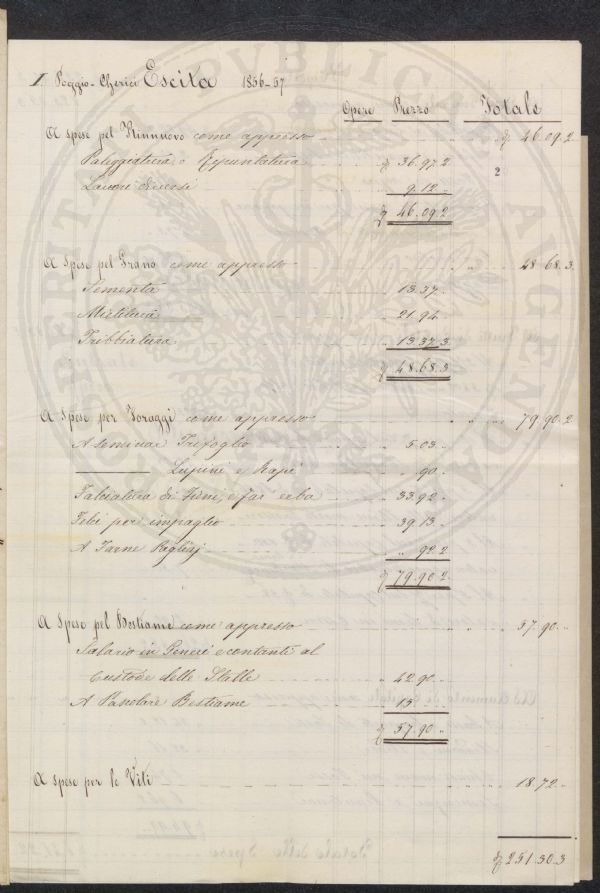 I. Poggio-Cherici Escita 1856-57
Opere Prezzo Totale
A Spese pel Rinnuovo come appresso £ 46.09.2
Paleggiatura e Repuntatura £ 36.97.2
2
Lavori diversi 9.12 "
£ 46.09.2
A Spese pel Grano come appresso 48.68.3
Sementa 13.37 "
Mietitura 21.94
Tribbiatura 13.37.3
£ 48.68.3
A Spese per Foraggi come appresso 79.90.2
A Seminar Trifoglio 5.03
——— Lupini e Rape " 90 "
Falciatura di Fieni, e far erba 33.92
Felci per impaglio 39.13
A Farne Pagliaj " 92.2
£ 79.90.2
A Spese pel Bestiame come appresso 57.90 "
Salario in Generi e contanti al
Custode delle Stalle 42.90 "
A Pasolare Bestiame 15 "
£ 57.90 "
A Spese per le Viti 18.72 "
£ 251.30.3